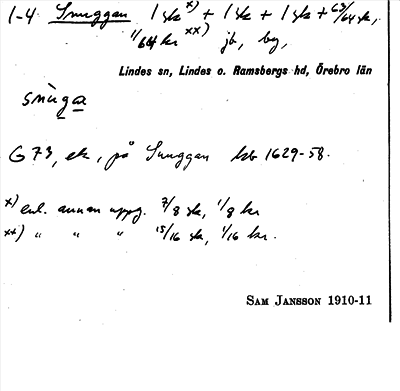 1-4 Snuggan 1 sk x) + 1 sk + 1 sk + 63/64 sk,
1/64 kr xx) jb, by,
Lindes sn, Lindes o. Ramsbergs hd, Örebro län
snùgaͅ
G 73, ek, på Snuggan kb 1629-58.
x) enl. annan uppg. 7/8 sk, 1/8 kr
xx) " " " 15/16 sk, 1/16 kr.
SAM JANSSON 1910-11